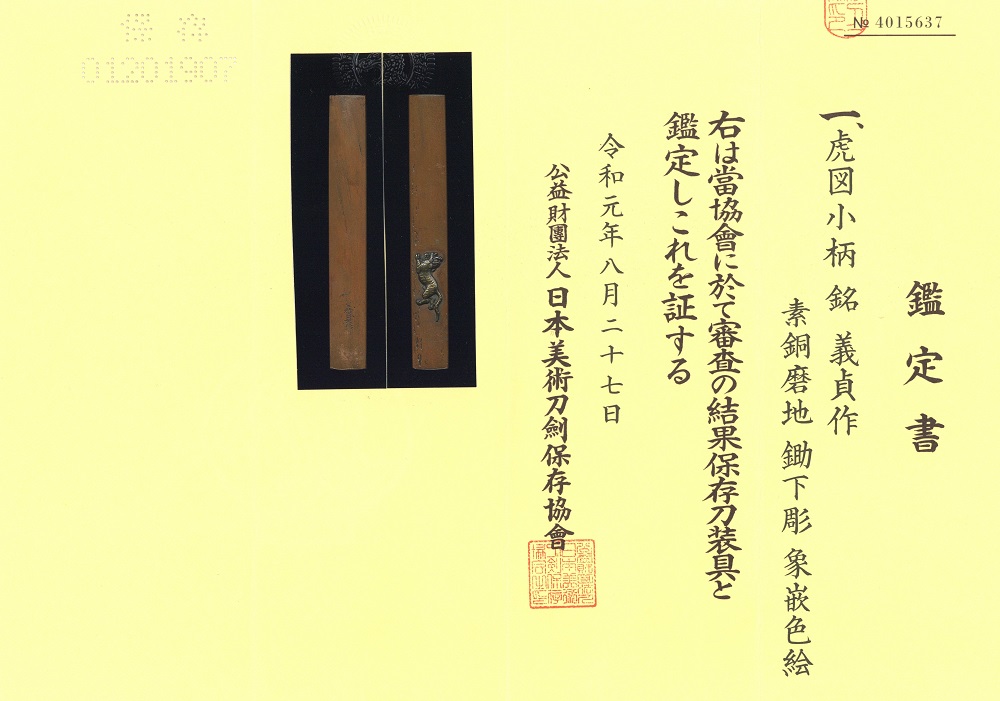 № 4015637
鑑定書
一、虎図小柄 銘 義貞作
素銅磨地 鋤下彫 象嵌色絵
右は當協會に於て審査の結果保存刀装具と
鑑定しこれを証する
令和元年八月二十七日
公益財團法人 日本美術刀劍保存協會
保存
01201907